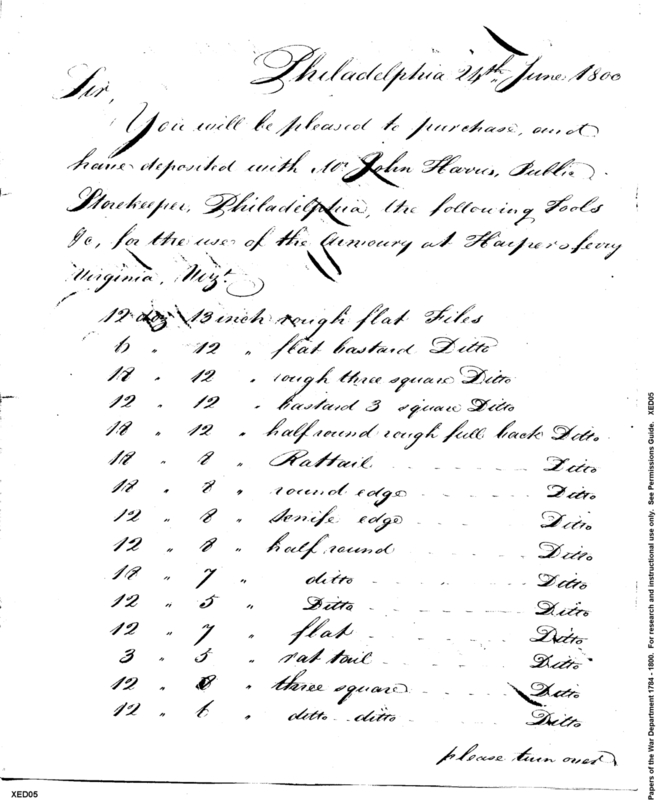 Philadelphia 24th June 1800
Sir,
You will be pleased to purchase, and
have deposited with Mr. John Harris, Public
Storekeeper, Philadelphia, the following Tools
&c, for the use of the Armoury at Harpers ferry
Virginia, Vizt.
12 doz 13 inch rough flat Files
6 " 12 " flat bastard Ditto
18 " 12 " rough three square Ditto
12 " 12 " bastard 3 square Ditto
18 " 12 " half round rough full back Ditto
18 " 8 " Rattail Ditto
18 " 8 " round edge Ditto
12 " 8 " knife edge Ditto
12 " 8 " half round Ditto
18 " 7 " ditto Ditto
12 " 5 " Ditto Ditto
12 " 7 " flat Ditto
3 " 5 " rat tail Ditto
12 " 8 " three square Ditto
12 " 6 " ditto ditto Ditto
please turn over
XED05
Papers of the War Department 1784 - 1800. For research and instructional use only. See Permissions Guide. XED05